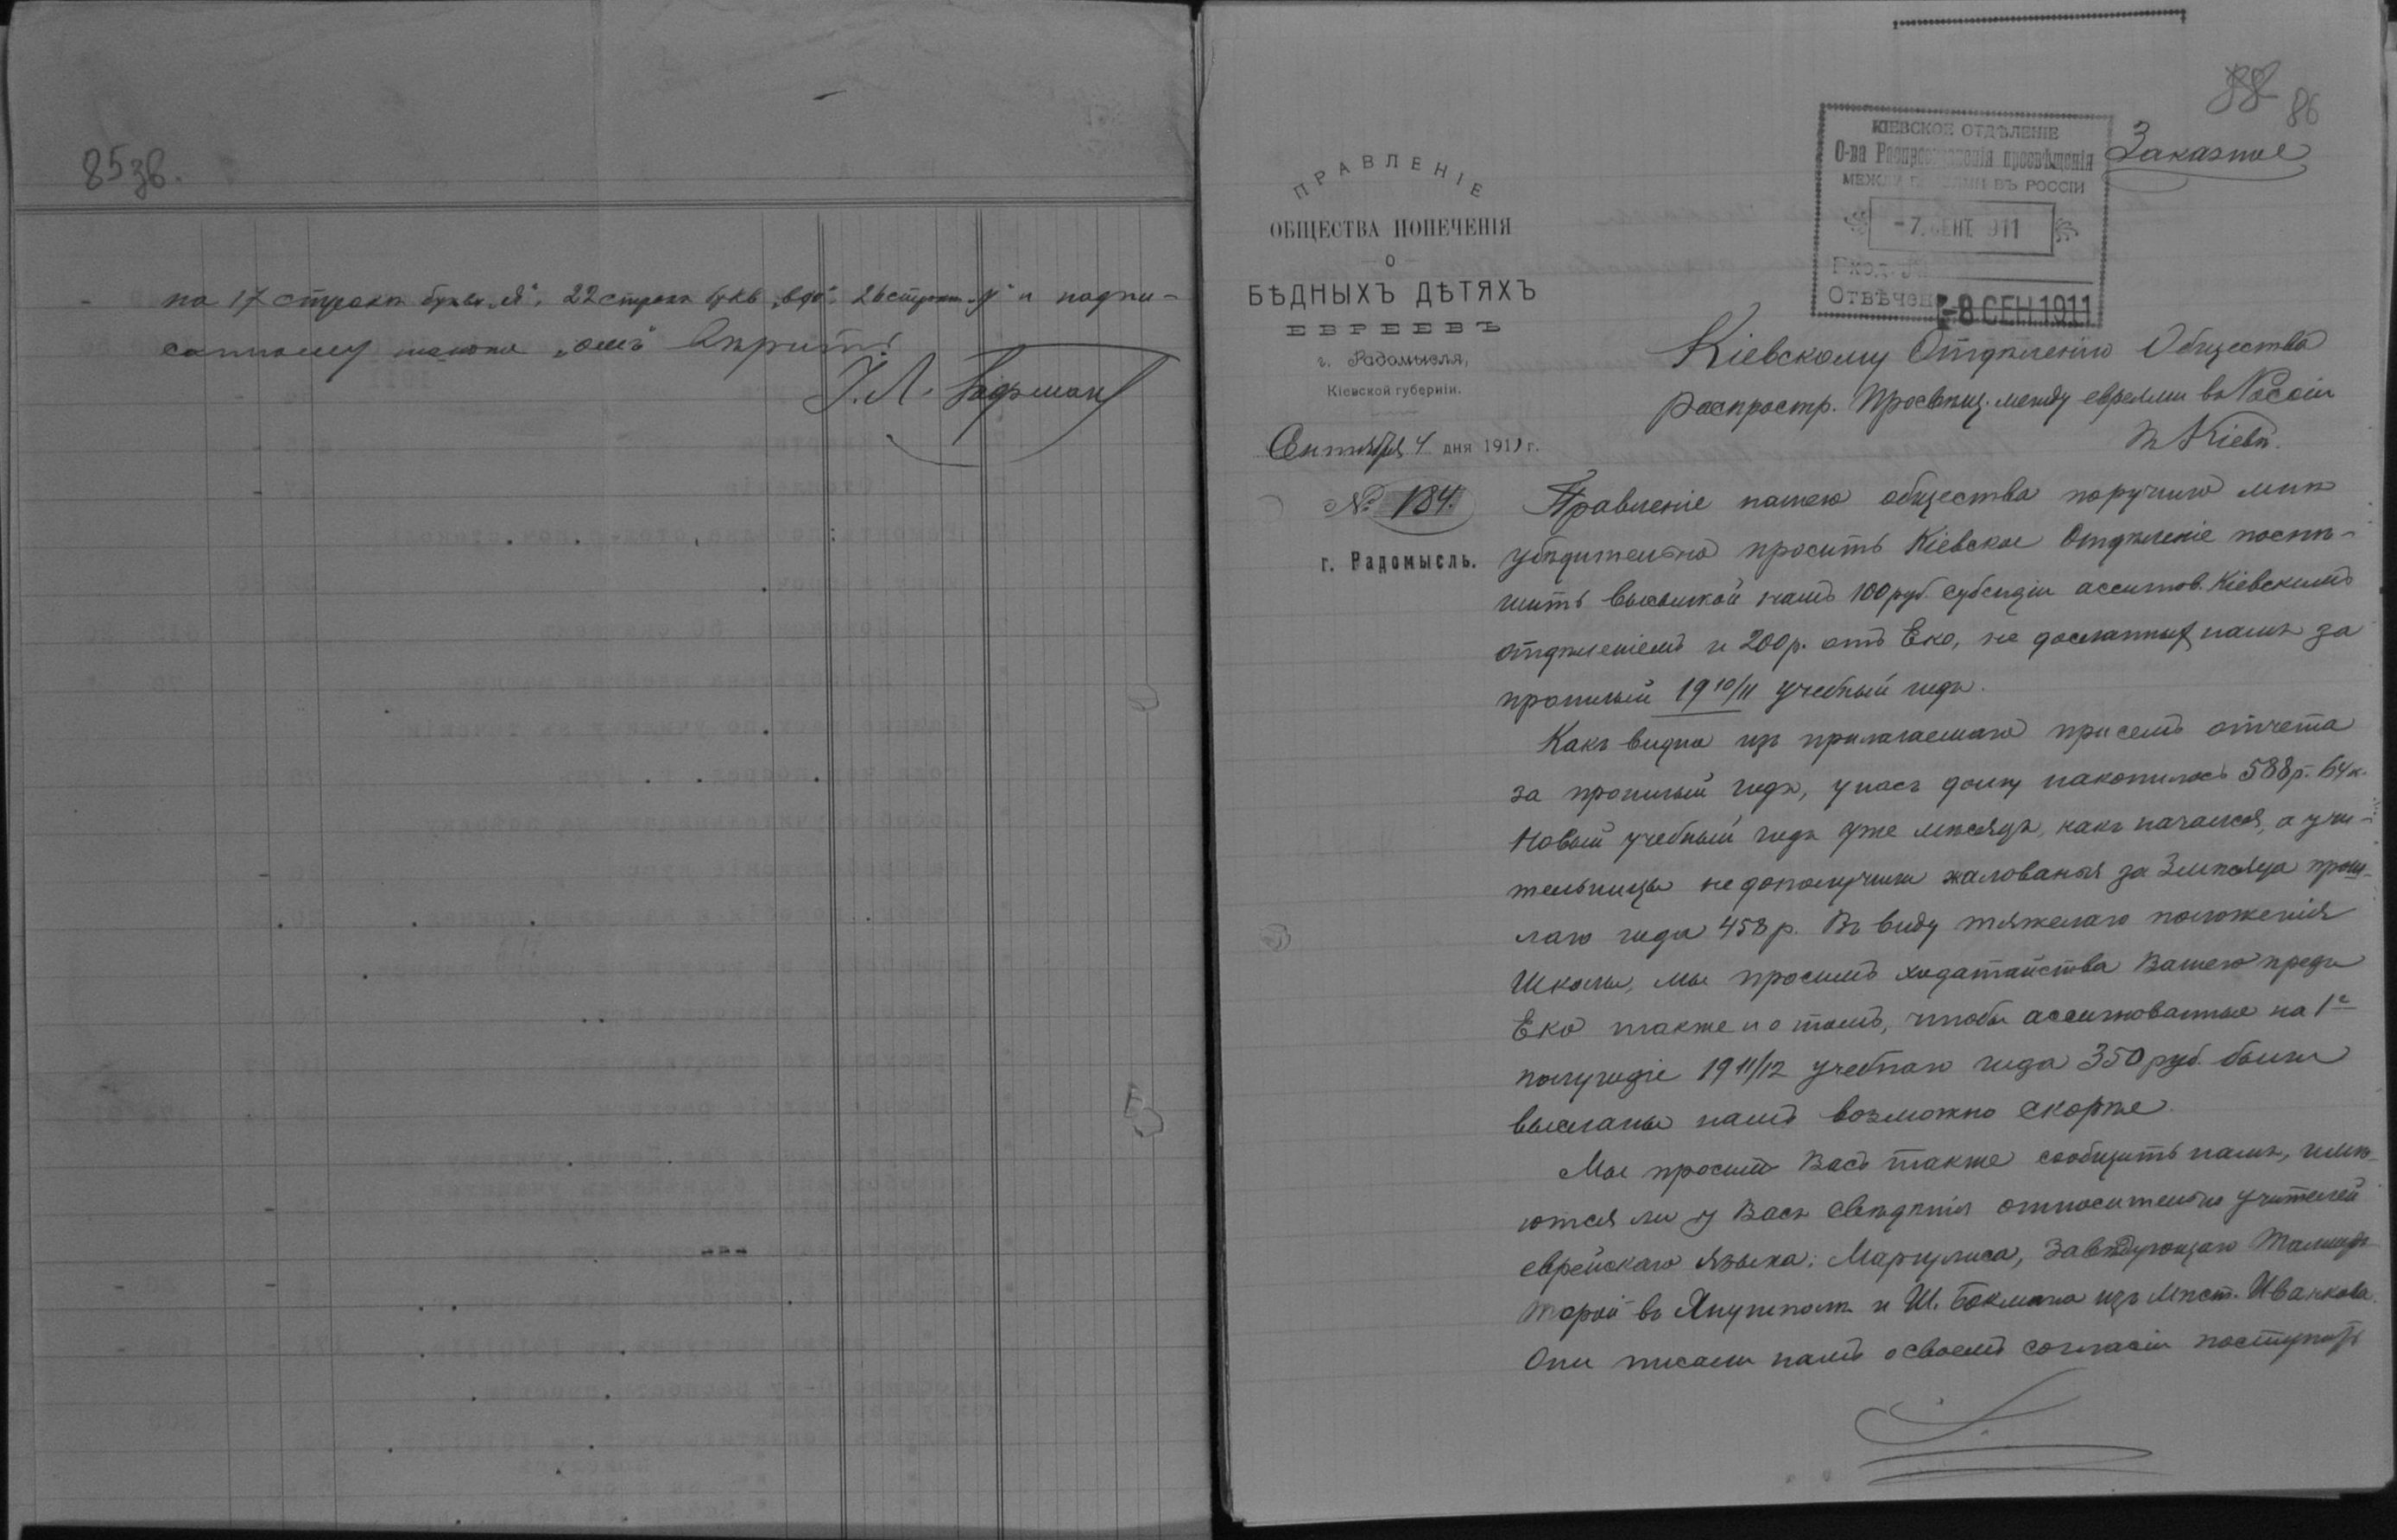 85зв.
на 17 строкѣ букв. „й“, 22 строкѣ букв „вдо“. 26 строкѣ „у“ и подпи-
санному „омъ“ вѣрить!
І. Л. Гофман
88 86
Заказное
КІЕВСКОЕ ОТДѢЛЕНІЕ
О-ва Распространенія просвѣщенія
МЕЖДУ ЕВРЕЯМИ ВЪ РОССІИ
-7. СЕНТ. 911
Вход. №
Отвѣчено -8 СЕН 1911
ПРАВЛЕНІЕ
ОБЩЕСТВА ПОПЕЧЕНІЯ
О
БѢДНЫХЪ ДѢТЯХЪ
ЕВРЕЕВЪ
г. Радомысля,
Кіевской губерніи.
Сентября 4 дня 1911 г.
№ 184.
г. Радомысль.
Кіевскому Отдѣленію Общества
распростр. Просвѣщ. между евреями въ Россіи
въ Кіевѣ.
Правленіе нашего общества поручило мнѣ
убѣдительно просить Кіевское Отдѣленіе поспѣ-
шить высылкой намъ 100 руб. субсидіи ассигнов. Кіевскимъ
отдѣленіемъ и 200 р. отъ Еко, не досланных намъ за
прошлый 19 10/11 учебный годъ.
Какъ видно изъ прилагаемаго при семъ отчета
за прошлый годъ, у насъ долгу накопилось 588 р. 64 к.
Новый учебный годъ уже мѣсяцъ, какъ начался, а учи-
тельницы не дополучили жалованья за 3 мѣсяца прош-
лаго года 458 р. Въ виду тяжелаго положенія
Школы, мы просимъ ходатайства Вашего предъ
Еко также и о томъ, чтобы ассигнованные на 1е
полугодіе 19 11/12 учебнаго года 350 руб. были
высланы намъ возможно скорѣе.
Мы просимъ Васъ также сообщить намъ, имѣ-
ются ли у Васъ свѣдѣнія относительно учителей
еврейскаго языка: Маргулиса, завѣдующаго Талмудъ-
торой въ Янушполѣ и Ш. Бокмана изъ мѣст. Иванкова.
Они писали намъ о своемъ согласіи поступить